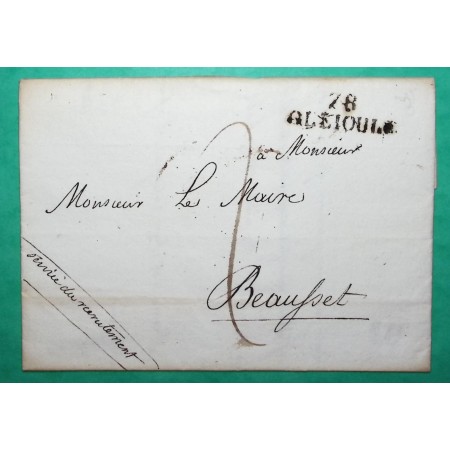 78
OLEIOULE
à Monsieur
Monsieur Le Maire
Beausset
service du recrutement
2